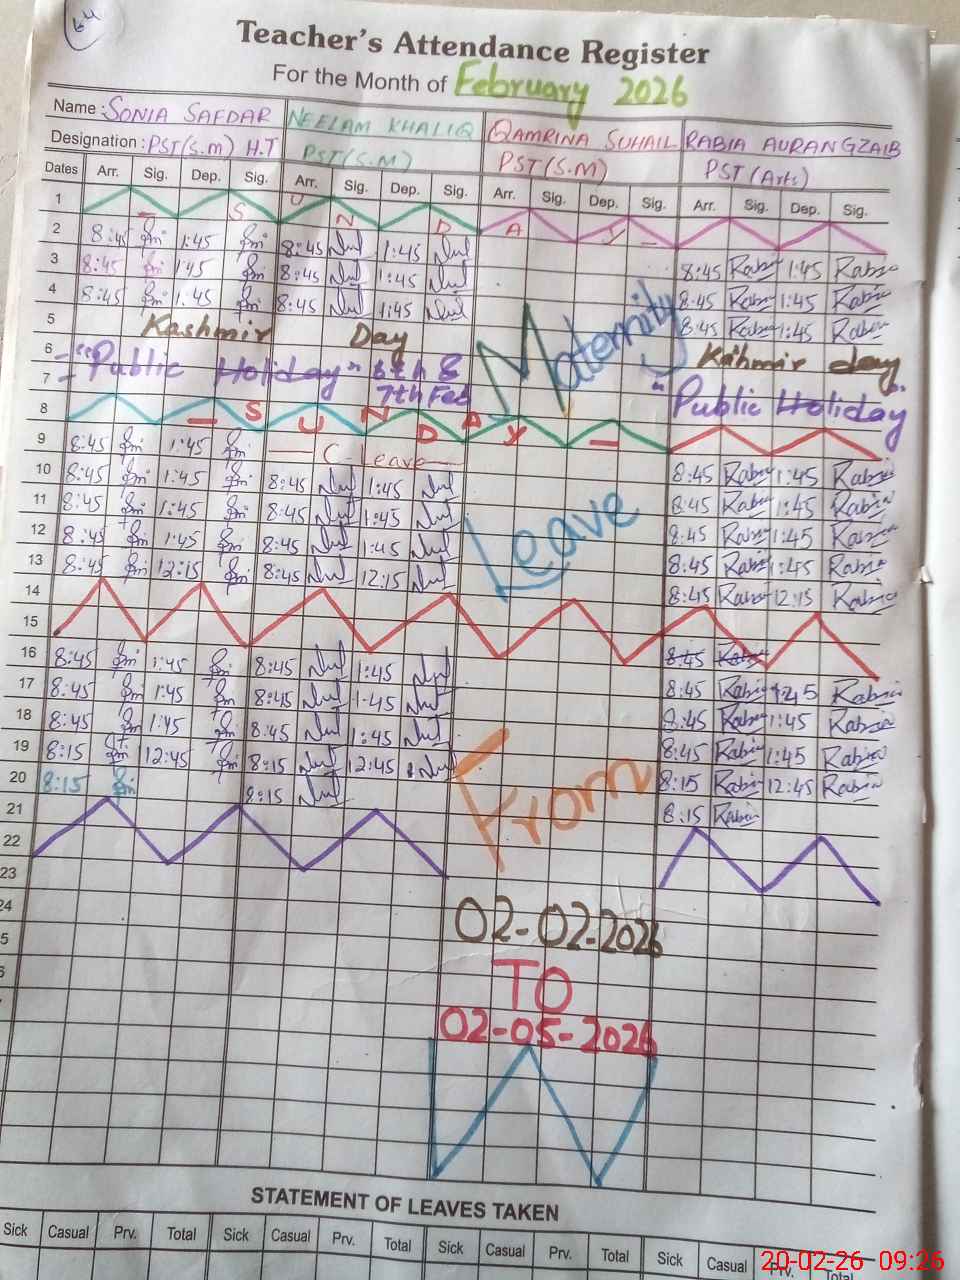 64
Teacher's Attendance Register
For the Month of February 2026
Name : SONIA SAFDAR NEELAM KHALIQ QAMRINA SUHAIL RABIA AURANGZAIB
Designation : PST(S.m) H.T PST(S.M) PST(S.M) PST(Arts)
Dates Arr. Sig. Dep. Sig. Arr. Sig. Dep. Sig. Arr. Sig. Dep. Sig. Arr. Sig. Dep. Sig.
1 – S U N D A Y –
2 8:45 1:45 8:45 1:45
3 8:45 1:45 8:45 1:45 8:45 Rabia 1:45 Rabia
4 8:45 1:45 8:45 1:45 8:45 Rabia 1:45 Rabia
5 Kashmir Day 8:45 Rabia 1:45 Rabia
Maternity
6 – "Public Holiday" 6th & Kahmir day
7 – 7th Feb "Public Holiday"
8 – S U N D A Y –
9 8:45 1:45 C-Leave
10 8:45 1:45 8:45 1:45 8:45 Rabia 1:45 Rabia
11 8:45 1:45 8:45 1:45 8:45 Rabia 1:45 Rabia
Leave
12 8:45 1:45 8:45 1:45 8:45 Rabia 1:45 Rabia
13 8:45 12:15 8:45 12:15 8:45 Rabia 1:45 Rabia
14 8:45 Rabia 12:15 Rabia
15
16 8:45 1:45 8:45 1:45 8:45 Rabia
17 8:45 1:45 8:45 1:45 8:45 Rabia 1:45 Rabia
18 8:45 1:45 8:45 1:45 8:45 Rabia 1:45 Rabia
19 8:15 12:45 8:15 12:45 8:45 Rabia 1:45 Rabia
20 8:15 8:15 8:15 Rabia 12:45 Rabia
From
21 8:15 Rabia
22
23
24
02-02-2026
5
TO
02-05-2026
STATEMENT OF LEAVES TAKEN
Sick Casual Prv. Total Sick Casual Prv. Total Sick Casual Prv. Total Sick Casual Prv. Total
20-02-26 09:26